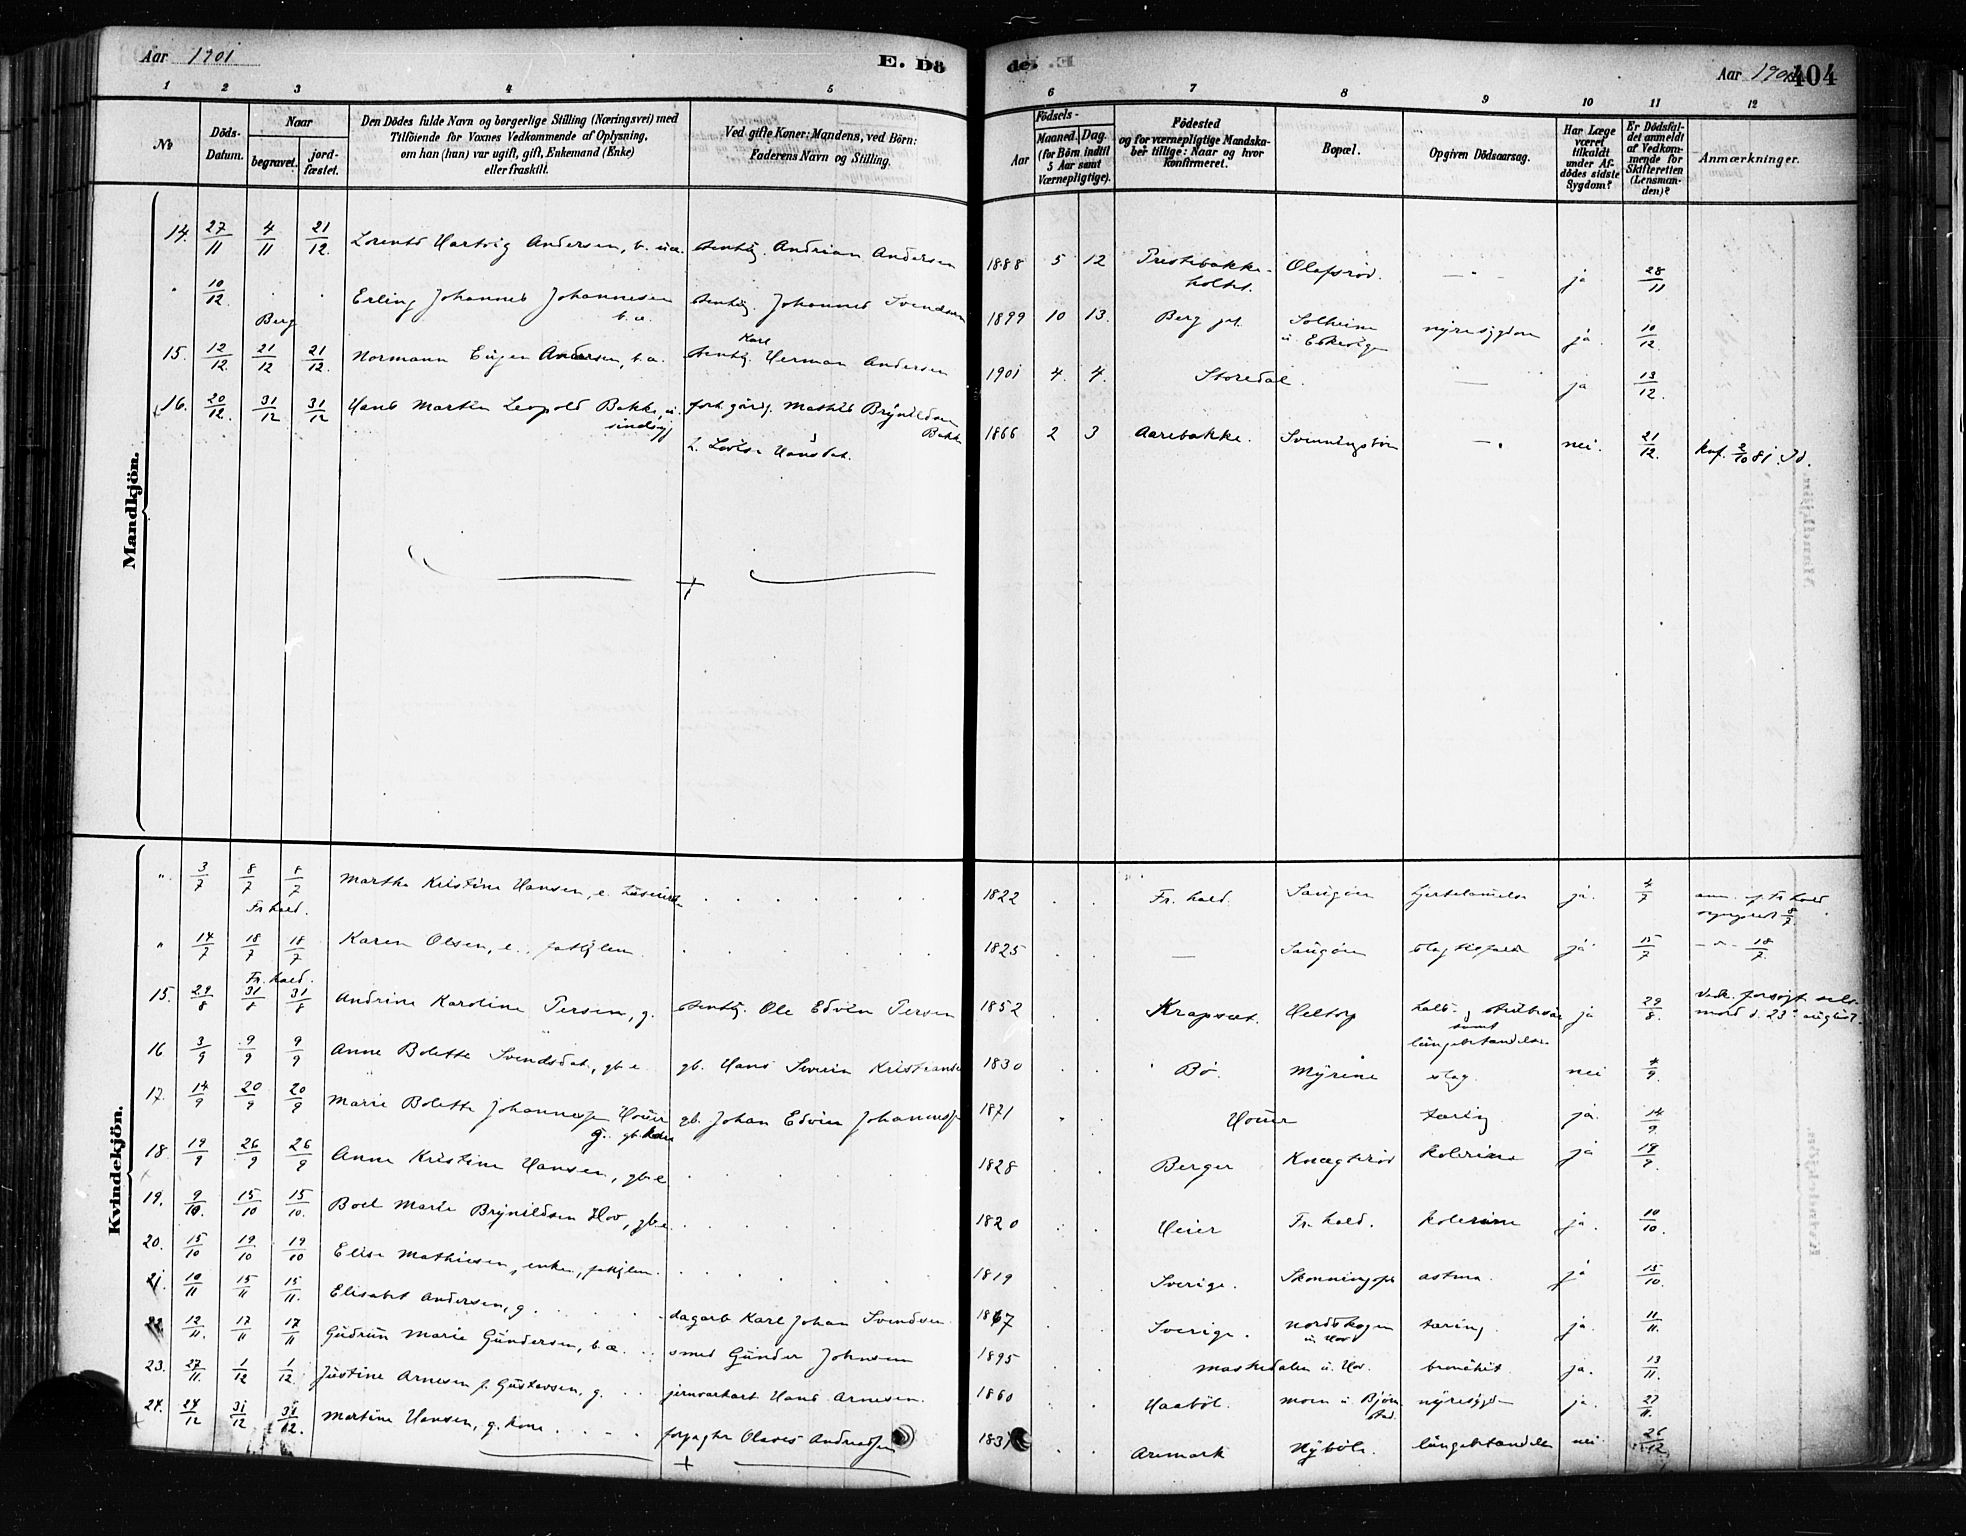 Aar 1901
E. Dö
de.
Aar 1901
404
1 2 3 4 5 6 7 8 9 10 11 12
No
Döds-Datum.
Naar
begravet.
jord-fæstet.
Den Dödes fulde Navn og borgerlige Stilling (Næringsvei) med
Tilföiende for Voxnes Vedkommende af Oplysning,
om han (hun) var ugift, gift, Enkemand (Enke)
eller fraskilt.
Ved gifte Koner: Mandens, ved Börn:
Faderens Navn og Stilling.
Födsels-
Aar
Maaned. Dag.
(for Börn indtil
5 Aar samt
Værnepligtige).
Födested
og for værnepligtige Mandska-
ber tillige: Naar og hvor
konfirmeret.
Bopæl.
Opgiven Dödsaarsag.
Har Læge
været
tilkaldt
under Af-
dödes sidste
Sygdom?
Er Dödsfal-
det anmeldt
af Vedkom-
mende for
Skifteretten
(Lensman-
den)?
Anmærkninger.
Mandkjön.
14. 27/11 4/11 21/12 Lorents Hartvig Andersen, Andrian Andersen 1888 5 12 Prestebakke- Olafsrød. — ja 28/11
" 10/12 Berg Erling Johannes Johannesen Johannes Svendsen 1899 10 13. Berg Solheim nyresygdom ja. 10/12.
15. 12/12 21/12 21/12. Normann Eugen Andersen, Karl Herman Andersen 1901 4. 4. Storedal. — ja 13/12.
16. 20/12. 31/12 31/12 Hans Martin Leopold Bakke, Mathis Brynildsen Bakke 1866 2 3 Aarebakke. — nei. 21/12. kof. 2/10 81. Id.
Kvindekjön.
" 3/7 8/7 8/7 Fr.hald. Martha Kristine Hansen, e. 1822 Fr. hald. Saugøen hjertelammelse ja. 4/7
" 14/7 18/7 18/7 Fr. hald. Karen Olsen, e., 1825 — Saugøen ja. 15/7 18/7.
15. 29/8 31/8 31/8 Andrine Karoline Persen, g. Ole Edvin Persen 1852 Krapsæt. Heltorp hals- samt lungebetændelse ja 29/8. forsøgt selv-
mord d. 23 august.
16 3/9 9/9 9/9 Anne Bolette Svendsdat., gb.e. gb. Hans Severin Kristiansen 1830 Bø. Myrene slag. nei 4/9.
17. 14/9 20/9 20/9 Marie Bolette Johannessen Houer g. gb. kone gb. Johan Edvin Johannessen 1871 Houer tæring ja. 14/9
18. 19/9 26/9 26/9 Anne Kristine Hansen, gb.e 1828 Berger Knægterød kolerine ja 19/9.
19. 9/10. 15/10 15/10. Boel Marie Brynildsen Hov, gb.e. 1820 Heier Fr. hald. kolerine ja. 10/10.
20. 15/10 19/10 19/10 Elise Mathiesen, enke, 1819 Sverige. astma. ja 15/10.
21. 10/11 15/11 15/11. Elisabet Andersen, g. dagarb Karl Johan Svendsen. 1867 Sverige. Nordskogen u. Hov tæring. ja. 11/11.
22. 12/11. 17/11 17/11 Gudrun Marie Gundersen, b.æ. smed Gunder Johnsen 1895 Maskedalen u. Hov. bronchit ja. 13/11.
23. 27/11. 1/12 1/12 Justine Arnesen f. Gustavsen, g. Hans Arnesen. 1860 Haabøl. moen u. Bjørnstad. nyresygd ja. 27/11.
24. 24/12 31/12 31/12. Martine Hansen, g. kone forpagter Olaves Andreassen 183 Aremark Nybøle. lungebetændelse nei 26/12